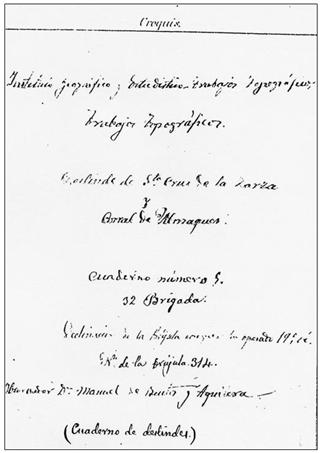 Croquis
Instituto geográfico y Estadístico. trabajos topográficos,
trabajos topográficos.
Deslinde de Sta Cruz de la Zarza
y
Corral de Almaguer.
Cuaderno número 5.
32 Brigada.
Declinación de la Brújula con que se ha operado 17º
Nº. de la brújula. 314.
Observador Dn. Manuel de y Aguilera.
(Cuaderno de deslindes.)